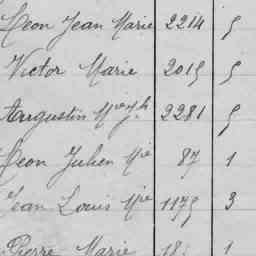 Léon Jean Marie 2214 5
Victor Marie 2015 5
Augustin 2281 5
Léon Julien Mie 87 1
Jean Louis Mie 1175 3
Pierre Marie 1